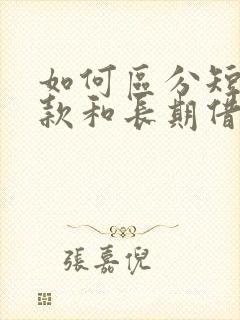 如何區分短
款和長期借
張嘉倪